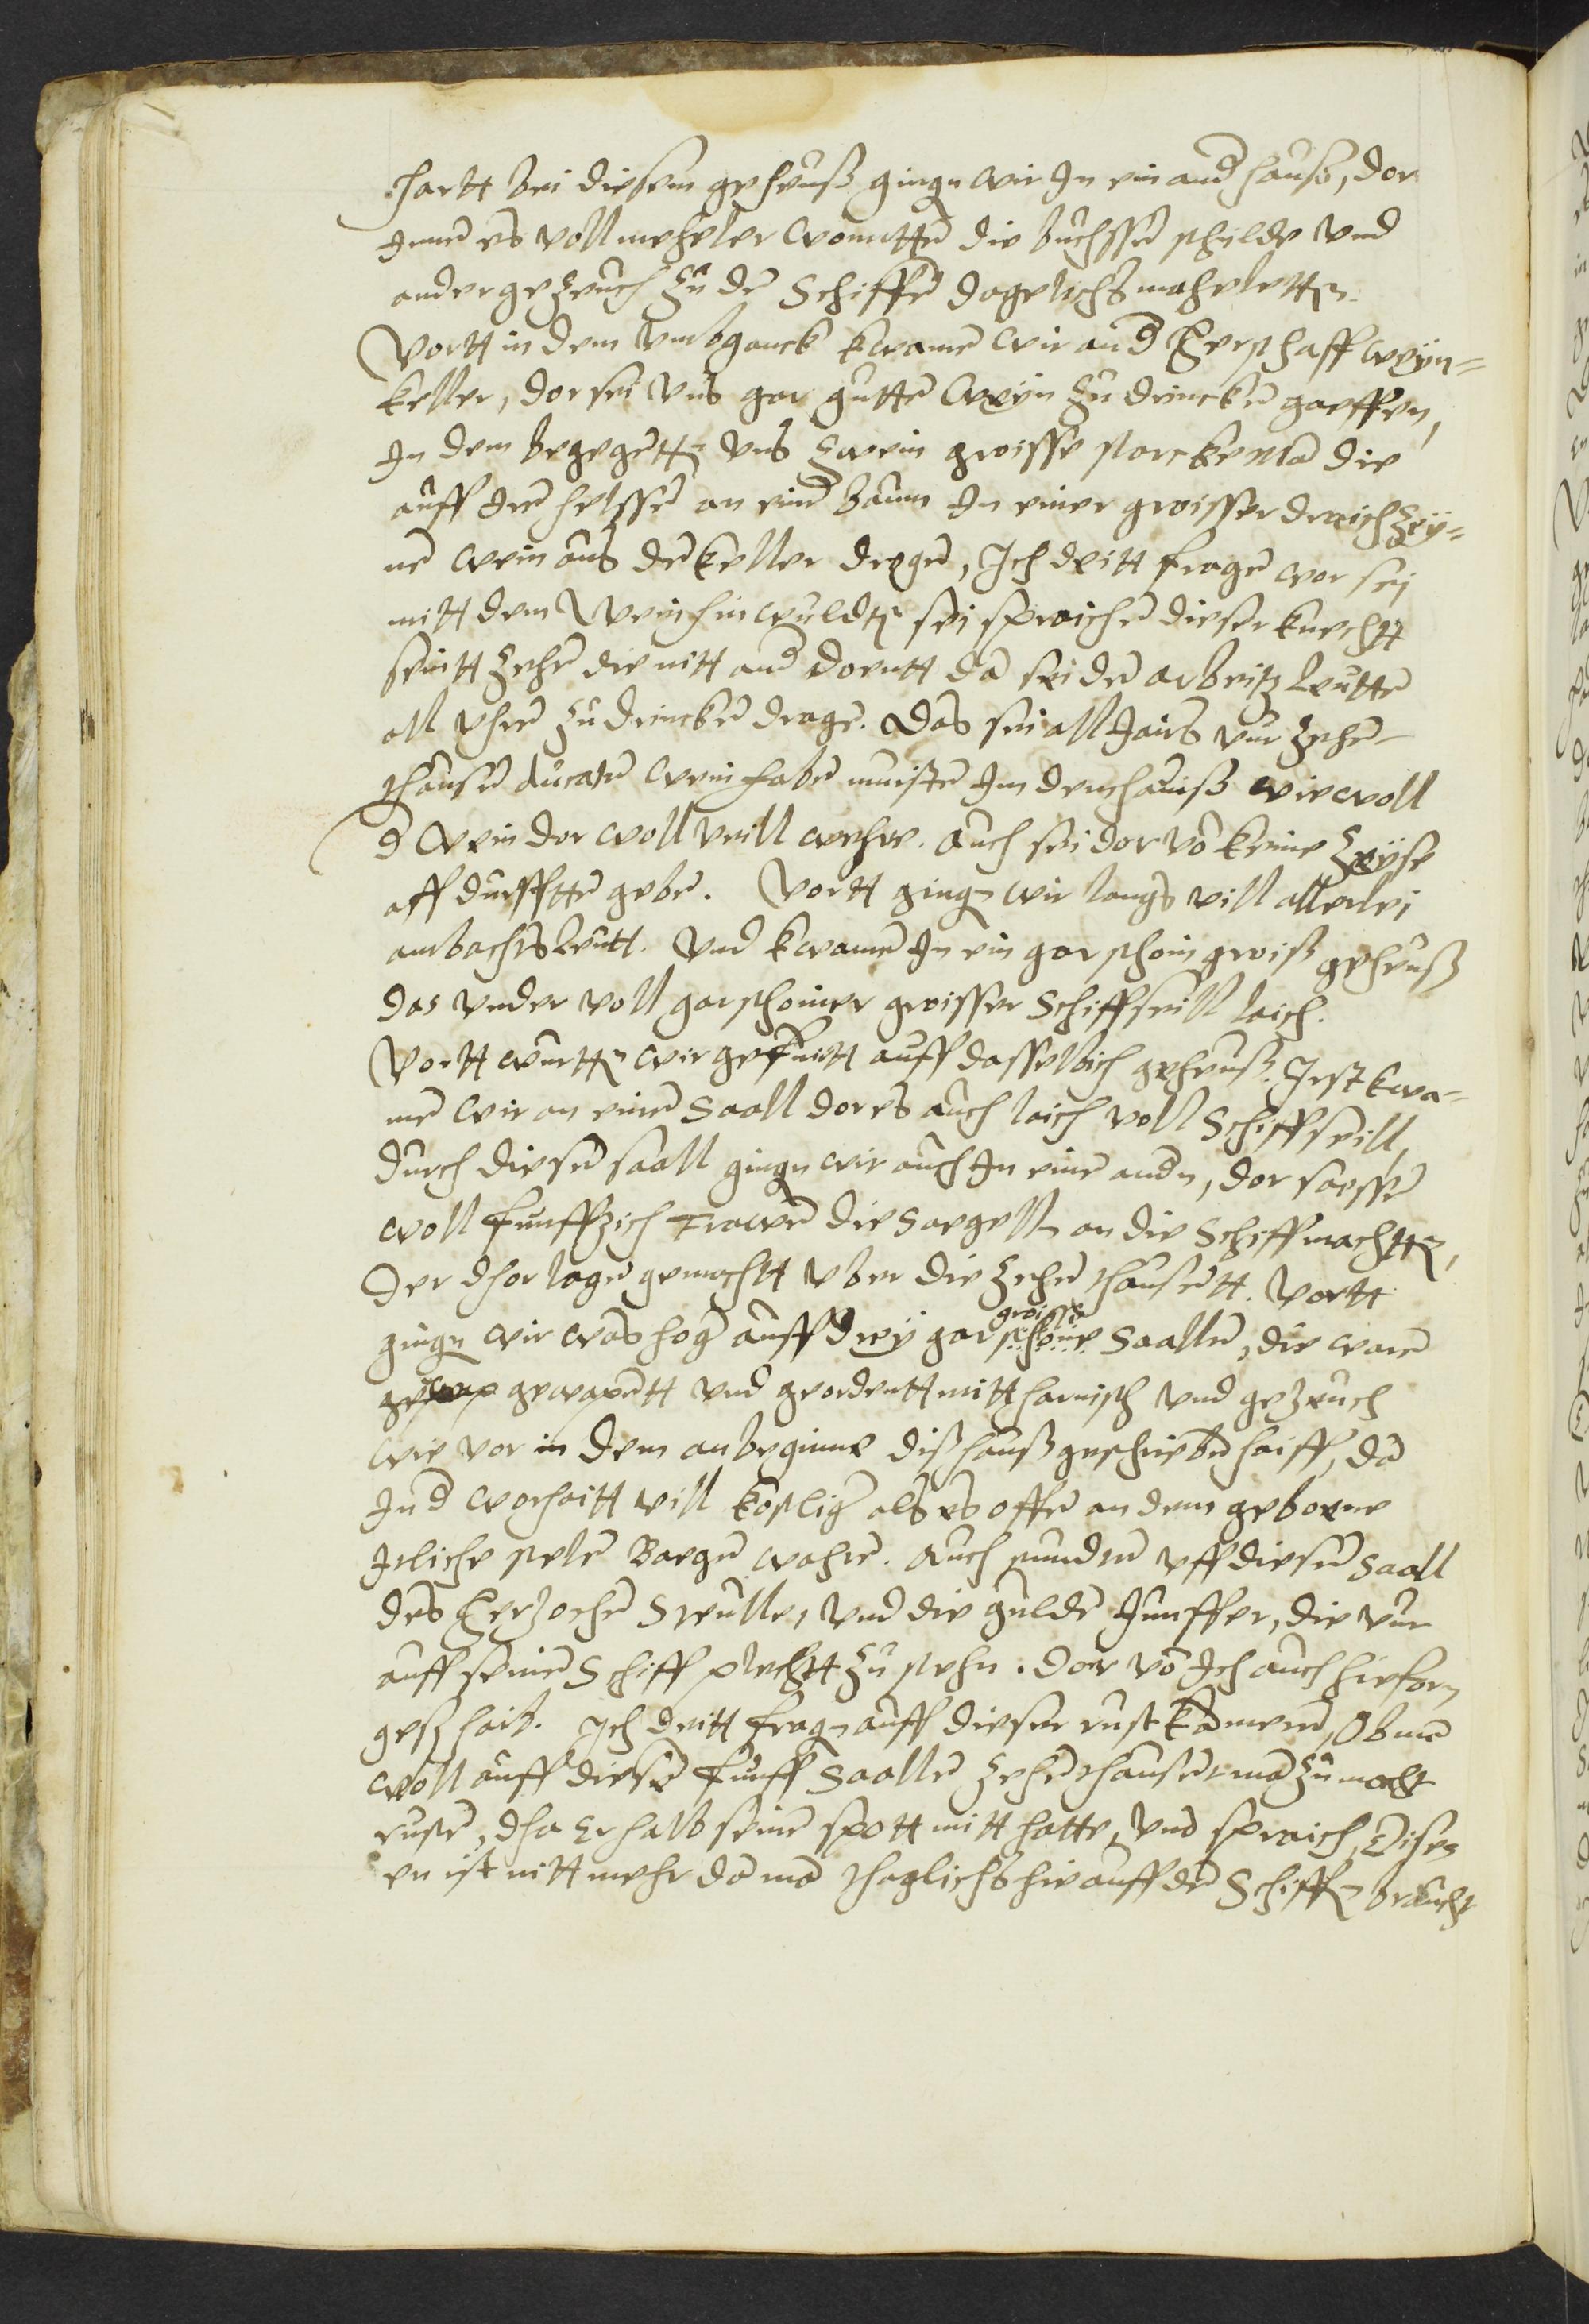 hartt bei diesem geheuß gingen wir In ein and hauß, dor
Inne es voll meheler wonntten die buchssen schilde und
ander gezeuch zu den Schiffen dagelichs maheletten.
Vortt in dem umbganck kwamen wir an d Herschaff weyn=
keller, dor sei uns gar gutten Weyn zu drincken gaeffen,
In dem begegetten uns zwein groisse starcke man die
auff Iren helssen an einen baum In einer groisser draich zeÿ=
nen wein aus den keller drogen, Ich deitt fragen wor sei
mitt dem Wein hin wuldten sei spraichen dieser knechtt
seintt zehen die nitt and doentt dan sei den arbeitz leutten
all uhren zu drincken dragen. Das sei all Jairs vur zehen
thausen ducaten wein haben muisten Im dem hauiß wie woll
d Wein dor woll veill wehre. Auch sei dor von keine Zeÿse
aff durfftten geben. Vortt gingen wir langs vill allerlei
ambachts leutt. Und kwamen In ein gar schoin groiß geheuß
das under voll gar schoiner groisser Schiffseill laich.
Vortt wurtten wir gefuirtt auff dasselbich geheuß. Irst kwa=
men wir an einen Saall dor es auch laich voll Schiffseill,
durch diesen saall gingen wir auch In einen andn, dor saessen
woll funffzich Frawen die Saegelln an die Schiff machtten,
Der dhor lagen gemachtt uber die zehen thausentt. Vortt
gingen wir was hoger auff dreÿ gar groisse schoine Saallen, die waren
gewapentt und geordentt mitt harnisch und gezeuch
wie vor in dem anbeginne diß hauß geschrieben haiff, dan
In d worheitt vill kostliger als es offen an dem geborne
Irliche stelen Baegen wahren. Auch stunden uff diesen Saall
des Hertzochen Stuelle, und die gulden Junffer, die vur
auff seinen Schiff plechtt zu stehn. Dor von Ich auch hieforn
gesch haib. Ich deitt fragen auff dieser rust kameren, Ob men
woll auff diesen funff Saallen zehen thausent man zu mocht
rusten, dha Er halb seinen spott mitt hatte, und spraich, Dises
en ist nitt mehr dan man thaglichs hie auff den Schiffen braucht